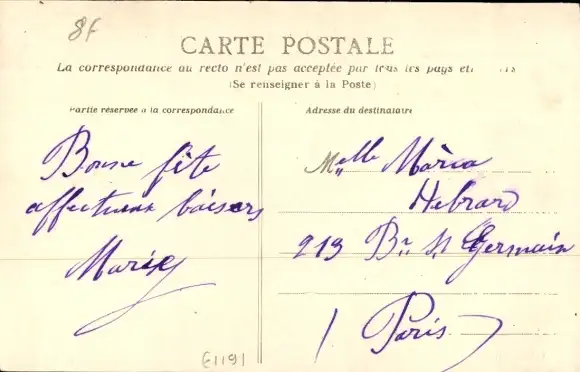 8f
CARTE POSTALE
La correspondance au recto n'est pas acceptée par tous les pays
(Se renseigner à la Poste)
Partie réservée à la correspondance
Adresse du destinataire
Bonne fête
affectueux baisers
Marie
Melle Maria
Hebrard
213 Bd St Germain
Paris
E1191